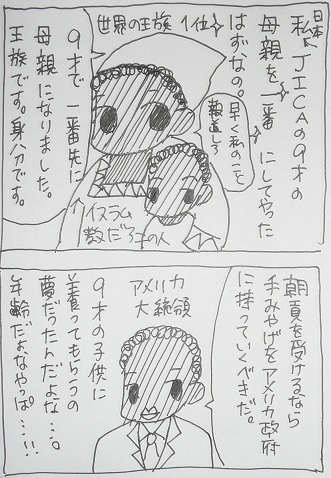 日本
私、JICAの9才の
母親を一番にしてやった
はずなの。
世界の王族 1位
早く私のこと
報道しろ
9才で一番先に
母親になりました。
王族です。身ハカです。
イスラム
教だろ
の人
朝貢を受けるなら
手みやげをアメリカ政府
に持っていくべきだ。
アメリカ
大統領
9才の子供に
養ってもらうの
夢だったんだよな…。
年齢だよなやっぱ…!!